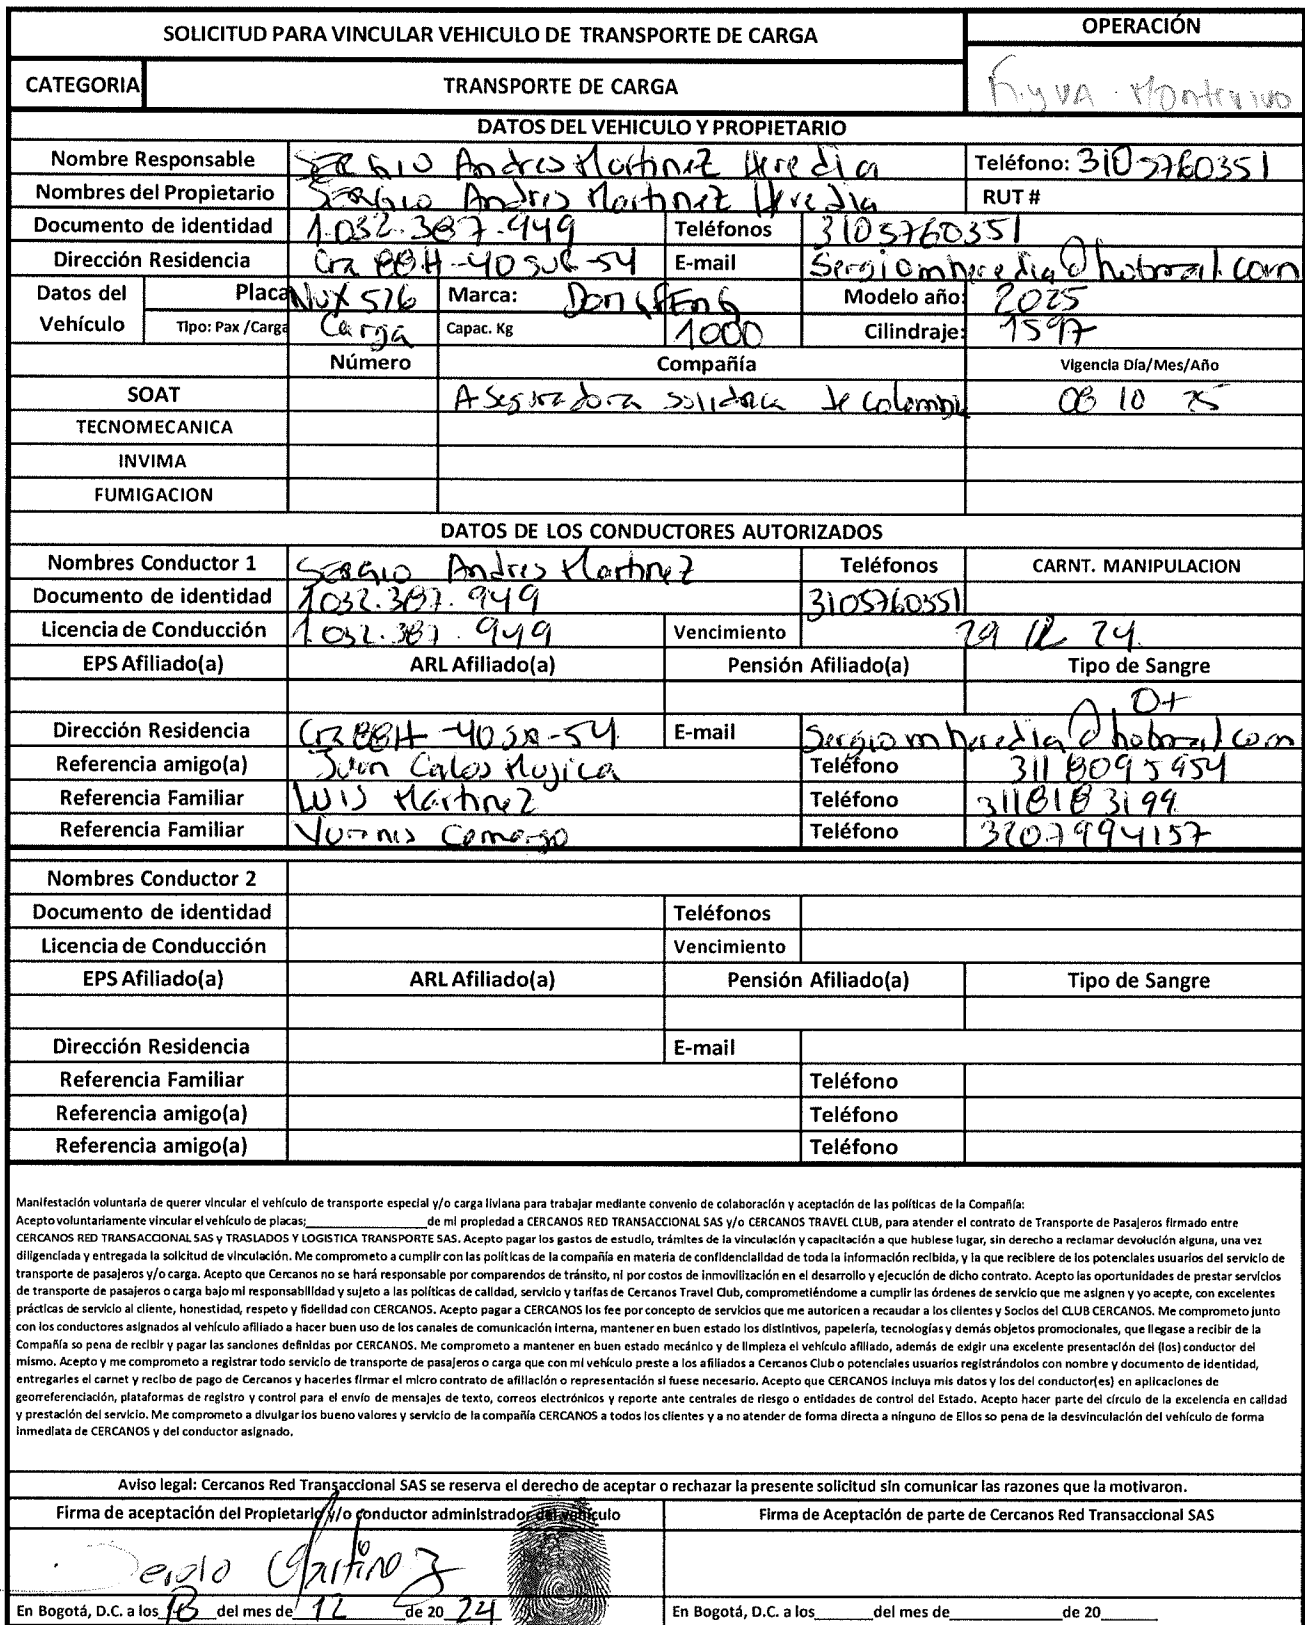 SOLICITUD PARA VINCULAR VEHICULO DE TRANSPORTE DE CARGA OPERACIÓN
CATEGORIA TRANSPORTE DE CARGA
DATOS DEL VEHICULO Y PROPIETARIO
Nombre Responsable SERGIO Andres Martinez Heredia Teléfono: 3105760351
Nombres del Propietario Sergio Andres Martinez Heredia RUT #
Documento de identidad 1.032.387.949 Teléfonos 3105760351
Dirección Residencia Cra 88H-40 sur-54 E-mail Sergiomheredia@hotmail.com
Datos del Vehículo Placa NUX 526 Marca: DongFEnG Modelo año: 2025
Tipo: Pax /Carga Carga Capac. Kg 1000 Cilindraje: 1597
Número Compañía Vigencia Día/Mes/Año
SOAT Aseguradora solidaria de Colombi 08 10 25
TECNOMECANICA
INVIMA
FUMIGACION
DATOS DE LOS CONDUCTORES AUTORIZADOS
Nombres Conductor 1 SERGIO Andres Martinez Teléfonos CARNT. MANIPULACION
Documento de identidad 1032.387.949 3105760351
Licencia de Conducción 1.032.387.949 Vencimiento 29 12 24.
EPS Afiliado(a) ARL Afiliado(a) Pensión Afiliado(a) Tipo de Sangre
O+
Dirección Residencia Cra 88H-40 sur-54. E-mail Sergiomheredia@hotmail.com
Referencia amigo(a) Juan Carlos Mojica Teléfono 3118095954
Referencia Familiar LUIS Martinez Teléfono 3118183199
Referencia Familiar Camargo Teléfono 3207994157
Nombres Conductor 2
Documento de identidad Teléfonos
Licencia de Conducción Vencimiento
EPS Afiliado(a) ARL Afiliado(a) Pensión Afiliado(a) Tipo de Sangre
Dirección Residencia E-mail
Referencia Familiar Teléfono
Referencia amigo(a) Teléfono
Referencia amigo(a) Teléfono
Manifestación voluntaria de querer vincular el vehículo de transporte especial y/o carga liviana para trabajar mediante convenio de colaboración y aceptación de las políticas de la Compañía:
Acepto voluntariamente vincular el vehículo de placas;____________________de mi propiedad a CERCANOS RED TRANSACCIONAL SAS y/o CERCANOS TRAVEL CLUB, para atender el contrato de Transporte de Pasajeros firmado entre
CERCANOS RED TRANSACCIONAL SAS y TRASLADOS Y LOGISTICA TRANSPORTE SAS. Acepto pagar los gastos de estudio, trámites de la vinculación y capacitación a que hubiese lugar, sin derecho a reclamar devolución alguna, una vez
diligenciada y entregada la solicitud de vinculación. Me comprometo a cumplir con las políticas de la compañía en materia de confidencialidad de toda la información recibida, y la que recibiere de los potenciales usuarios del servicio de
transporte de pasajeros y/o carga. Acepto que Cercanos no se hará responsable por comparendos de tránsito, ni por costos de inmovilización en el desarrollo y ejecución de dicho contrato. Acepto las oportunidades de prestar servicios
de transporte de pasajeros o carga bajo mi responsabilidad y sujeto a las políticas de calidad, servicio y tarifas de Cercanos Travel Club, comprometiéndome a cumplir las órdenes de servicio que me asignen y yo acepte, con excelentes
prácticas de servicio al cliente, honestidad, respeto y fidelidad con CERCANOS. Acepto pagar a CERCANOS los fee por concepto de servicios que me autoricen a recaudar a los clientes y Socios del CLUB CERCANOS. Me comprometo junto
con los conductores asignados al vehículo afiliado a hacer buen uso de los canales de comunicación interna, mantener en buen estado los distintivos, papelería, tecnologías y demás objetos promocionales, que llegase a recibir de la
Compañía so pena de recibir y pagar las sanciones definidas por CERCANOS. Me comprometo a mantener en buen estado mecánico y de limpieza el vehículo afiliado, además de exigir una excelente presentación del (los) conductor del
mismo. Acepto y me comprometo a registrar todo servicio de transporte de pasajeros o carga que con mi vehículo preste a los afiliados a Cercanos Club o potenciales usuarios registrándolos con nombre y documento de identidad,
entregarles el carnet y recibo de pago de Cercanos y hacerles firmar el micro contrato de afiliación o representación si fuese necesario. Acepto que CERCANOS incluya mis datos y los del conductor(es) en aplicaciones de
georreferenciación, plataformas de registro y control para el envío de mensajes de texto, correos electrónicos y reporte ante centrales de riesgo o entidades de control del Estado. Acepto hacer parte del círculo de la excelencia en calidad
y prestación del servicio. Me comprometo a divulgar los bueno valores y servicio de la compañía CERCANOS a todos los clientes y a no atender de forma directa a ninguno de Ellos so pena de la desvinculación del vehículo de forma
inmediata de CERCANOS y del conductor asignado.
Aviso legal: Cercanos Red Transaccional SAS se reserva el derecho de aceptar o rechazar la presente solicitud sin comunicar las razones que la motivaron.
Firma de aceptación del Propietario y/o conductor administrador del vehículo Firma de Aceptación de parte de Cercanos Red Transaccional SAS
Sergio Martinez
En Bogotá, D.C. a los 18 del mes de 12 de 20 24 En Bogotá, D.C. a los______del mes de___________de 20______